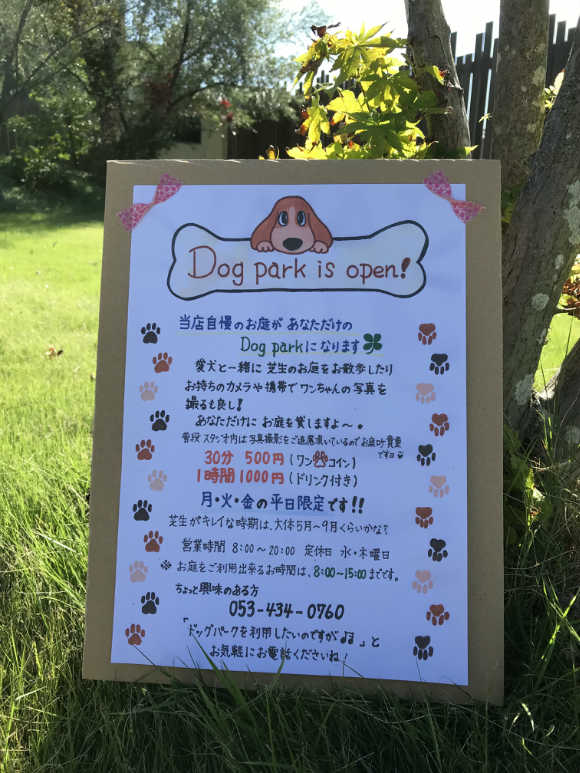 Dog park is open!
当店自慢のお庭が あなただけの
Dog parkになります
愛犬と一緒に 芝生のお庭をお散歩したり
お持ちのカメラや携帯でワンちゃんの写真を
撮るも良し!
あなただけに お庭を貸しますよ〜。
普段 スタジオ内は写真撮影をご遠慮頂いているのでお庭は貴重
ですヨ
30分 500円 (ワンコイン)
1時間 1000円 (ドリンク付き)
月・火・金の平日限定です!!
芝生がキレイな時期は、大体5月〜9月くらいかな?
営業時間 8:00〜20:00 定休日 水・木曜日
※ お庭をご利用出来るお時間は、8:00〜15:00までです。
ちょっと興味のある方
053-434-0760
「ドッグパークを利用したいのですが」と
お気軽にお電話くださいね!